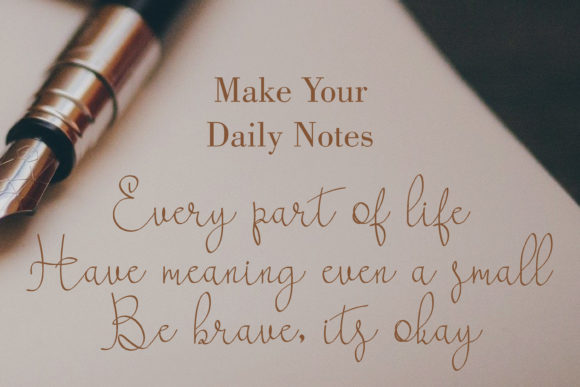 Make Your
Daily Notes
Every part of life
Have meaning even a small
Be brave, its okay